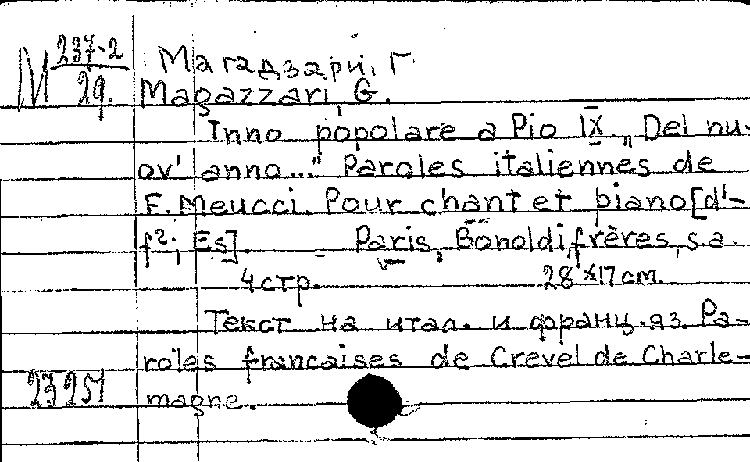 М 237-2
29.
Магадзари, Г.
Magazzari, G.
Inno popolare a Pio IX „Del nu-
ov' anno..." Paroles italiennes de
F. Meucci. Pour chant et piano [d'-
f²; Es]. _ Paris, Bonoldi frères, s.a.
4 стр. 28×17 cm.
Текст на итал. и франц. яз. Pa-
roles francaises de Crevel de Charle-
magne.
27251